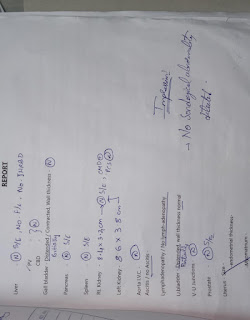 REPORT
Liver : (N) S/E, No F/L, No IHBRD
PV : (N)
CBD
Gall bladder : Distended / Contracted, Wall thickness (N)
Pancreas : (N) S/E
Spleen : (N) S/E
Rt. Kidney : 8.4 x 3.9 cm (N) S/E, CMD (N)
Left Kidney : 8.6 x 3.8 cm PCS (N)
Aorta IVC (N)
Ascitis / no Ascitis
Lymphadenopathy / No lymph adenopathy
U.bladder wall thickness normal
V U junctions
Prostate : (N) S/E
Uterus : size endometrial thickness
Myometrium :
Impression:
→ No Sonological abnormality